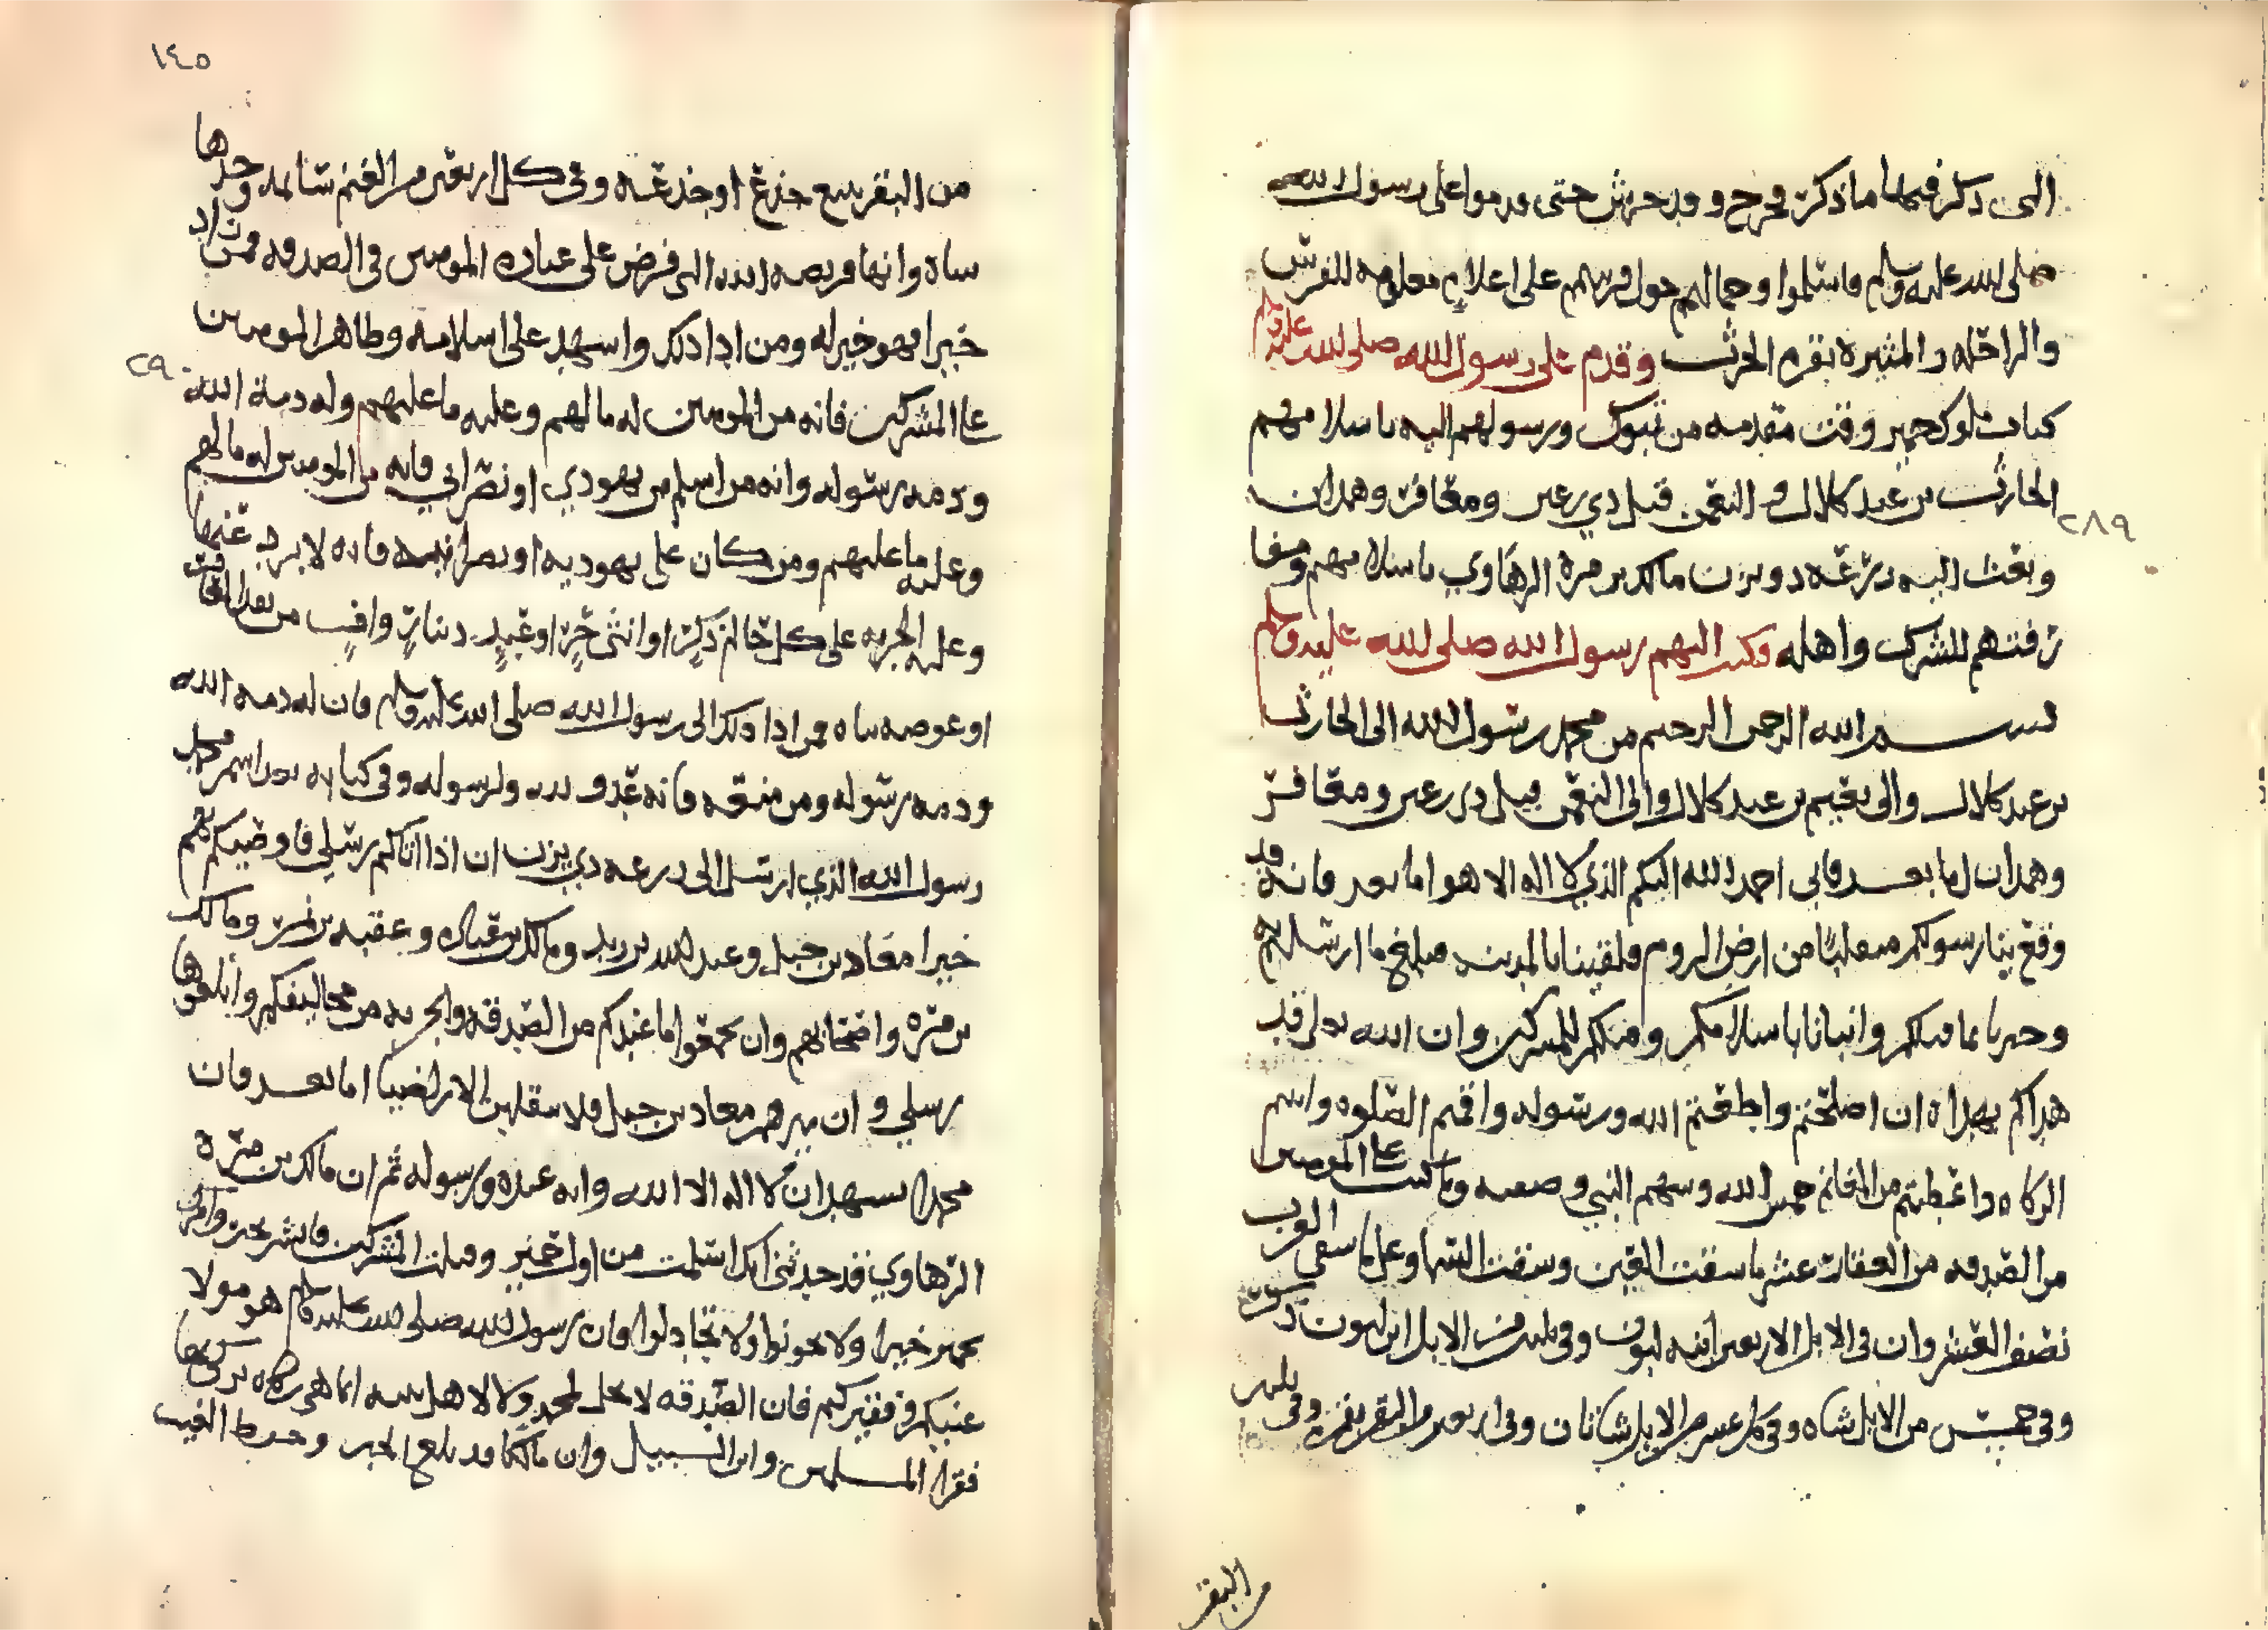 الى ذكر فيها ما ذكر فخرج وفد جرش حتى قدموا على رسول الله
صلى الله عليه وسلم فاسلموا وحما لهم حول قريتهم على اعلام معلومه للفرس
والراحله والمثيرة بقرة الحرث وقدم على رسول الله صلى الله عليه وسلم
كتاب ملوك حمير وقت مقدمه من تبوك ورسولهم اليه باسلامهم
الحارث بن عبد كلال والنعمن قيل ذي رعين ومعافر وهمدان
وبعث اليه زرعه ذو يزن مالك بن مرة الرهاوي باسلامهم ومفا
رقتهم للشرك واهله فكتب اليهم رسول الله صلى الله عليه وسلم
بسم الله الرحمن الرحيم من محمد رسول الله الى الحارث
بن عبد كلال والى نعيم بن عبد كلال والى النعمن قيل ذي رعين ومعافر
وهمدان اما بعد فاني احمد الله اليكم الذي لا اله الا هو اما بعد فانه قد
وقع بنا رسولكم منقلبنا من ارض الروم فلقينا بالمدينه فبلغ ما ارسلتم به
وخبرنا عما قبلكم وانبانا باسلامكم وقتلكم المشركين وان الله تعلى قد
هداكم بهداه ان اصلحتم واطعتم الله ورسوله واقمتم الصلوه واتيتم
الزكاه واعطيتم من المغانم خمس الله وسهم النبي وصفيه وما كتب على المومنين
من الصدقه من العقار عشر ما سقت العين وسقت السما وعلى ما سقى الغرب
نصف العشر وان في الابل الاربعين ابنة لبون وفي ثلثين من الابل ابن لبون ذكر
وفي خمس من الابل شاه وفي كل عشر من الابل شاتان وفي اربعين من البقر بقره وفي ثلثين
من البقر
٢٨٩
١٤٥
من البقر تبيع جذع او جذعه وفي كل اربعين من الغنم سايمه وحدها
شاه وانها فريضه الله التي فرض على عباده المومنين في الصدقه فمن زاد
خيرا فهو خير له ومن ادا ذلك واشهد على اسلامه وظاهر المومنين
على المشركين فانه من المومنين له ما لهم وعليه ما عليهم وله ذمة الله
وذمه رسوله وانه من اسلم من يهودي او نصراني فانه من المومنين له ما لهم
وعليه ما عليهم ومن كان على يهوديه او نصرانيه فانه لا يرد عنها
وعليه الجزيه على كل حالم ذكر او انثى حر او عبد دينار واف من قيمة المعافر
او عوضه ثيابا فمن ادا ذلك الى رسول الله صلى الله عليه وسلم فان له ذمه الله
وذمه رسوله ومن منعه فانه عدو لله ولرسوله وفي كتابه بعد اسم محمد
رسول الله الذي ارسل الى زرعه ذي يزن ان اذا اتاكم رسلي فاوصيكم بهم
خيرا معاذ بن جبل وعبد الله بن زيد ومالك بن عباده وعقبه بن نمر ومالك
بن مره واصحابهم وان تجمعوا ما عندكم من الصدقه والجزيه من مخاليفكم وابلغوها
رسلي وان اميرهم معاذ بن جبل فلا ينقلبن الا راضيا اما بعد فان
محمدا يشهد ان لا اله الا الله وانه عبده ورسوله ثم ان مالك بن مره
الرهاوي قد حدثني انك اسلمت من اول حمير وقتلت المشركين فابشر بخير وامرك
بحمير خيرا ولا تخونوا ولا تخاذلوا فان رسول الله صلى الله عليه وسلم هو مولا
غنيكم وفقيركم فان الصدقه لا تحل لمحمد ولا لاهل بيته انما هي زكاه يزكى بها
فقرا المسلمين وابن السبيل وان مالكا قد بلغ الخبر وحفظ الغيب
٢٩٠